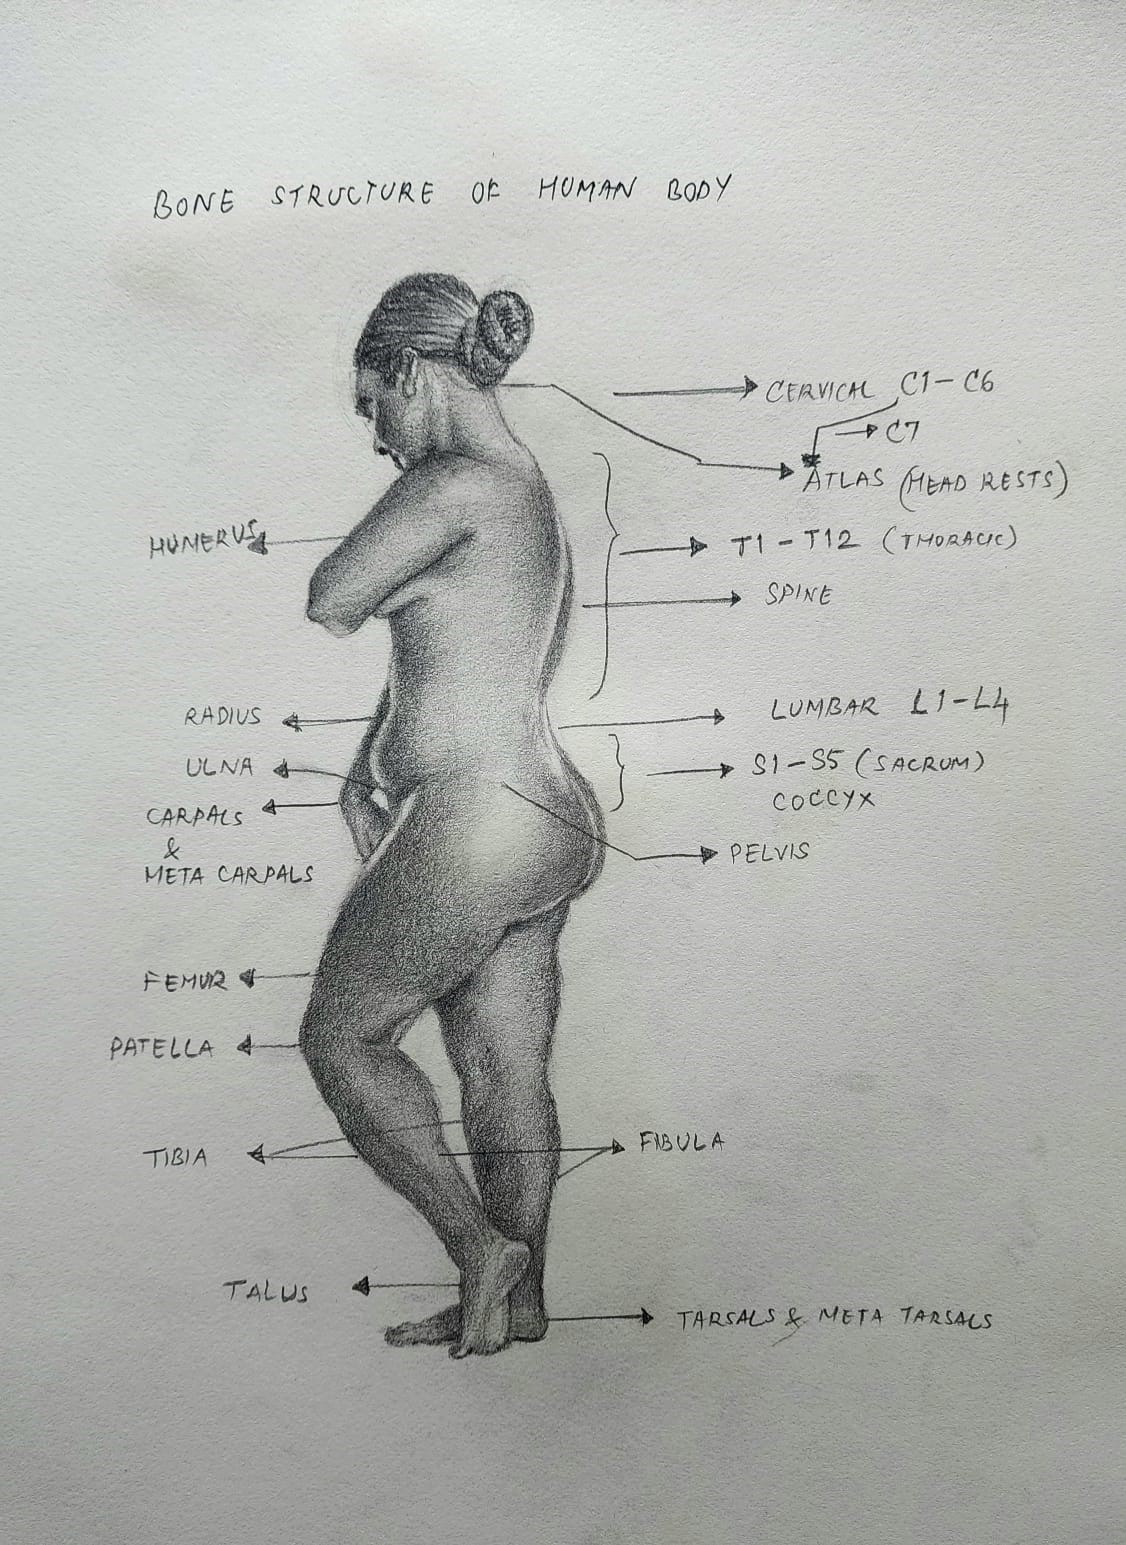 BONE STRUCTURE OF HUMAN BODY
CERVICAL C1-C6
C7
ATLAS (HEAD RESTS)
HUMERUS
T1-T12 (THORACIC)
SPINE
RADIUS
LUMBAR L1-L4
ULNA
S1-S5 (SACRUM)
COCCYX
CARPALS
&
META CARPALS
PELVIS
FEMUR
PATELLA
TIBIA
FIBULA
TALUS
TARSALS & META TARSALS